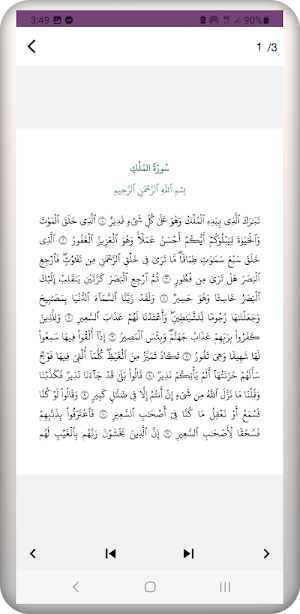 3:49
90%
1 /3
سُورَةُ المُلْكِ
بِسْمِ ٱللَّهِ ٱلرَّحْمَٰنِ ٱلرَّحِيمِ
تَبَٰرَكَ ٱلَّذِى بِيَدِهِ ٱلْمُلْكُ وَهُوَ عَلَىٰ كُلِّ شَىْءٍ قَدِيرٌ ١ ٱلَّذِى خَلَقَ ٱلْمَوْتَ
وَٱلْحَيَوٰةَ لِيَبْلُوَكُمْ أَيُّكُمْ أَحْسَنُ عَمَلًا وَهُوَ ٱلْعَزِيزُ ٱلْغَفُورُ ٢ ٱلَّذِى
خَلَقَ سَبْعَ سَمَٰوَٰتٍ طِبَاقًا مَّا تَرَىٰ فِى خَلْقِ ٱلرَّحْمَٰنِ مِن تَفَٰوُتٍ فَٱرْجِعِ
ٱلْبَصَرَ هَلْ تَرَىٰ مِن فُطُورٍ ٣ ثُمَّ ٱرْجِعِ ٱلْبَصَرَ كَرَّتَيْنِ يَنقَلِبْ إِلَيْكَ
ٱلْبَصَرُ خَاسِئًا وَهُوَ حَسِيرٌ ٤ وَلَقَدْ زَيَّنَّا ٱلسَّمَآءَ ٱلدُّنْيَا بِمَصَٰبِيحَ
وَجَعَلْنَٰهَا رُجُومًا لِّلشَّيَٰطِينِ وَأَعْتَدْنَا لَهُمْ عَذَابَ ٱلسَّعِيرِ ٥ وَلِلَّذِينَ
كَفَرُوا۟ بِرَبِّهِمْ عَذَابُ جَهَنَّمَ وَبِئْسَ ٱلْمَصِيرُ ٦ إِذَآ أُلْقُوا۟ فِيهَا سَمِعُوا۟
لَهَا شَهِيقًا وَهِىَ تَفُورُ ٧ تَكَادُ تَمَيَّزُ مِنَ ٱلْغَيْظِ كُلَّمَآ أُلْقِىَ فِيهَا فَوْجٌ
سَأَلَهُمْ خَزَنَتُهَآ أَلَمْ يَأْتِكُمْ نَذِيرٌ ٨ قَالُوا۟ بَلَىٰ قَدْ جَآءَنَا نَذِيرٌ فَكَذَّبْنَا
وَقُلْنَا مَا نَزَّلَ ٱللَّهُ مِن شَىْءٍ إِنْ أَنتُمْ إِلَّا فِى ضَلَٰلٍ كَبِيرٍ ٩ وَقَالُوا۟ لَوْ كُنَّا
نَسْمَعُ أَوْ نَعْقِلُ مَا كُنَّا فِىٓ أَصْحَٰبِ ٱلسَّعِيرِ ١٠ فَٱعْتَرَفُوا۟ بِذَنۢبِهِمْ
فَسُحْقًا لِّأَصْحَٰبِ ٱلسَّعِيرِ ١١ إِنَّ ٱلَّذِينَ يَخْشَوْنَ رَبَّهُم بِٱلْغَيْبِ لَهُم